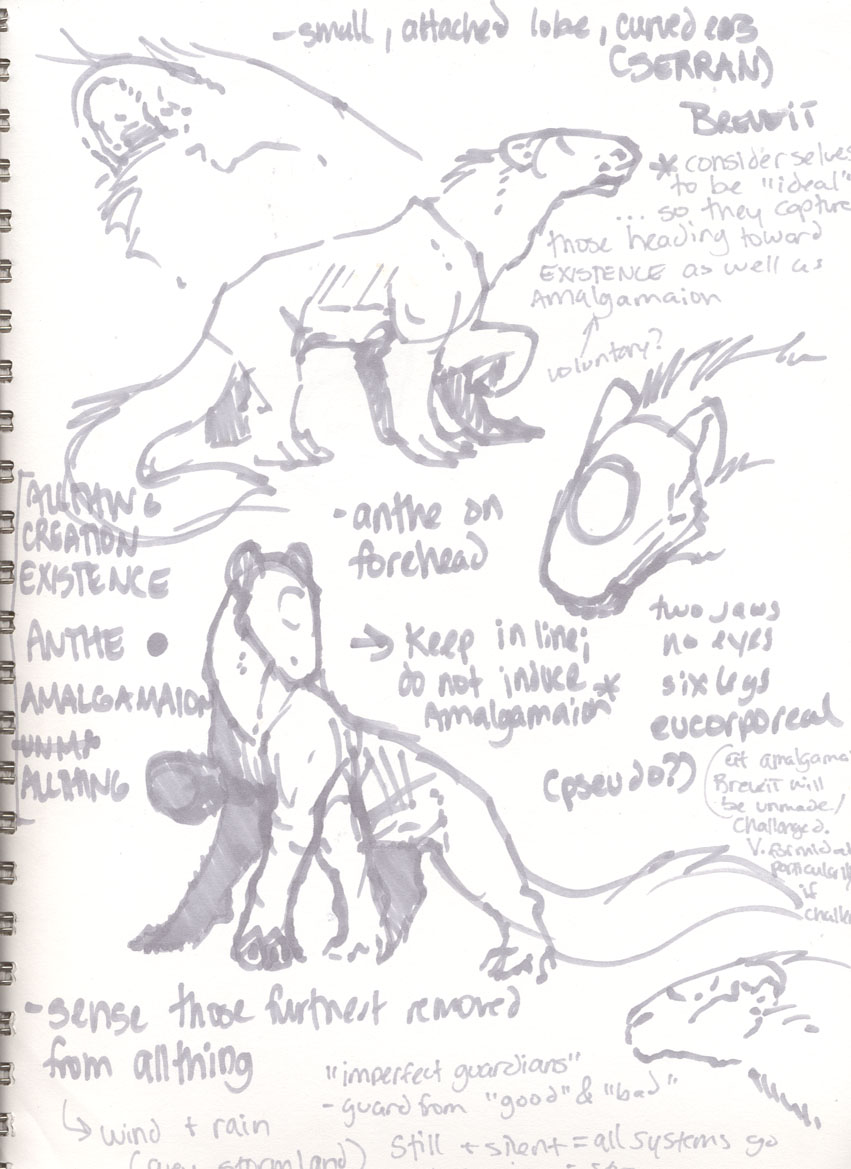 -small, attached lobe, curved ears
(SERRAN)
BREVEIT
* consider selves
to be "ideal"
... so they capture
those heading toward
EXISTENCE as well as
Amalgamaion
voluntary?
ALLTHING
CREATION
EXISTENCE
ANTHE ●
AMALGAMAION
ALLTHING
-anthe on
forehead
→ Keep in line;
do not induce
Amalgamaion*
two jaws
no eyes
six legs
eucorporeal
(pseudo?)
(at amalgamai
Breveit will
be unmade/
challenged.
V. formidab
particularly
if
challe
-sense those furthest removed
from allthing
↳ wind + rain
"imperfect guardians"
- guard from "good" & "bad"
still + silent = all systems go